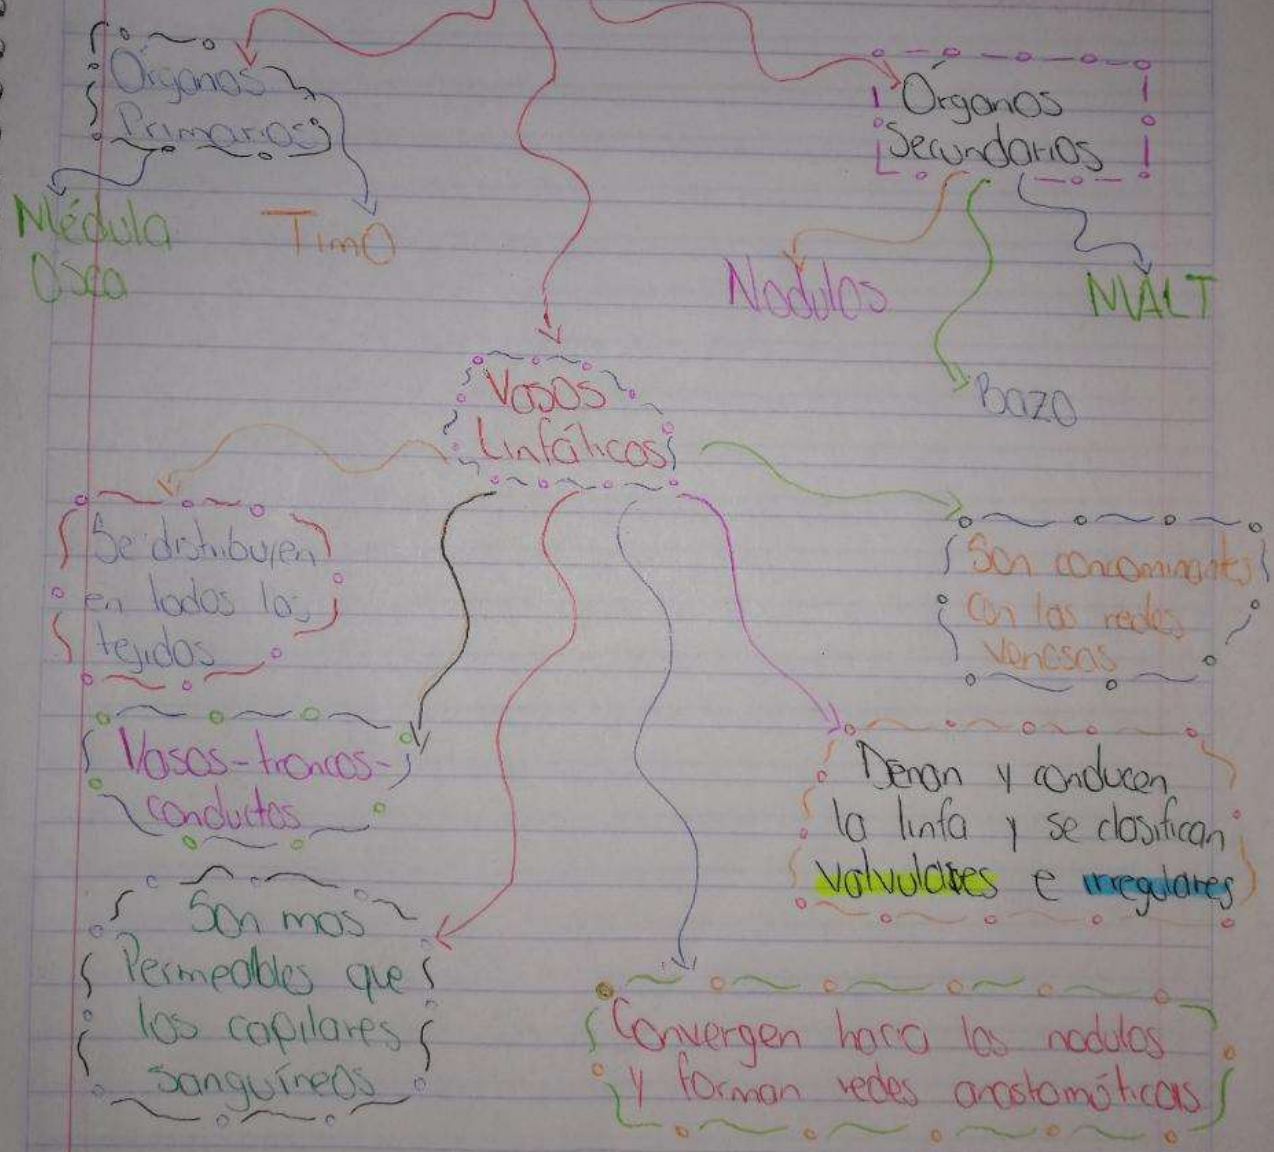 Órganos
Primarios
Médula
Osea
Timo
Órganos
Secundarios
Nodulos
MALT
Bazo
Vasos
Linfáticos
Se distribuyen
en todos los
tejidos
Son concominantes
con las redes
venosas
Vasos-troncos-
conductos
Drenan y conducen
la linfa y se clasifican
valvulares e irregulares
Son mas
Permeables que
los capilares
sanguíneos
Convergen hacia los nodulos
y forman redes anastomóticas